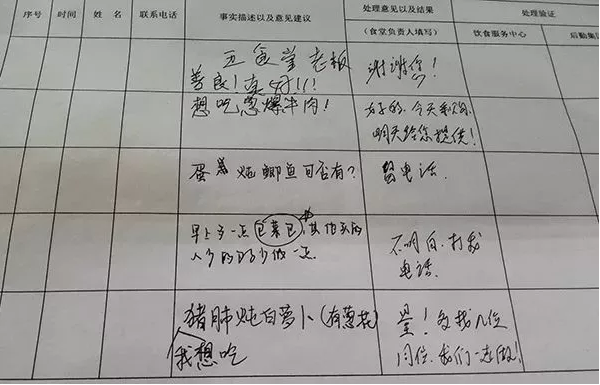 序号 时间 姓名 联系电话 事实描述以及意见建议 处理意见以及结果 处理验证
（食堂负责人填写） 饮食服务中心 后勤集
五食堂老板
善良！真好！！！
谢谢您！
想吃葱爆牛肉！
好的，今天采购，
明天给您提供！
蛋 炖鲫鱼可否有？
留电话.
早上多一点包菜包，其他买的
人少的可以少做一点.
不明白，打我
电话.
猪肺炖白萝卜（有葱花）
我想吃
晕！多找几位
同位，我们一起做！